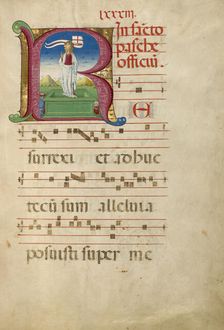 lxxxiii.
In sancto
pasche
officiū.
R E
surrexi et adhuc
tecū sum alleluia
posuisti super me